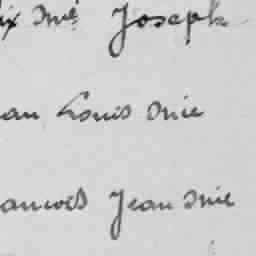 ix Mie Joseph
an Louis Mie
ancois Jean Mie